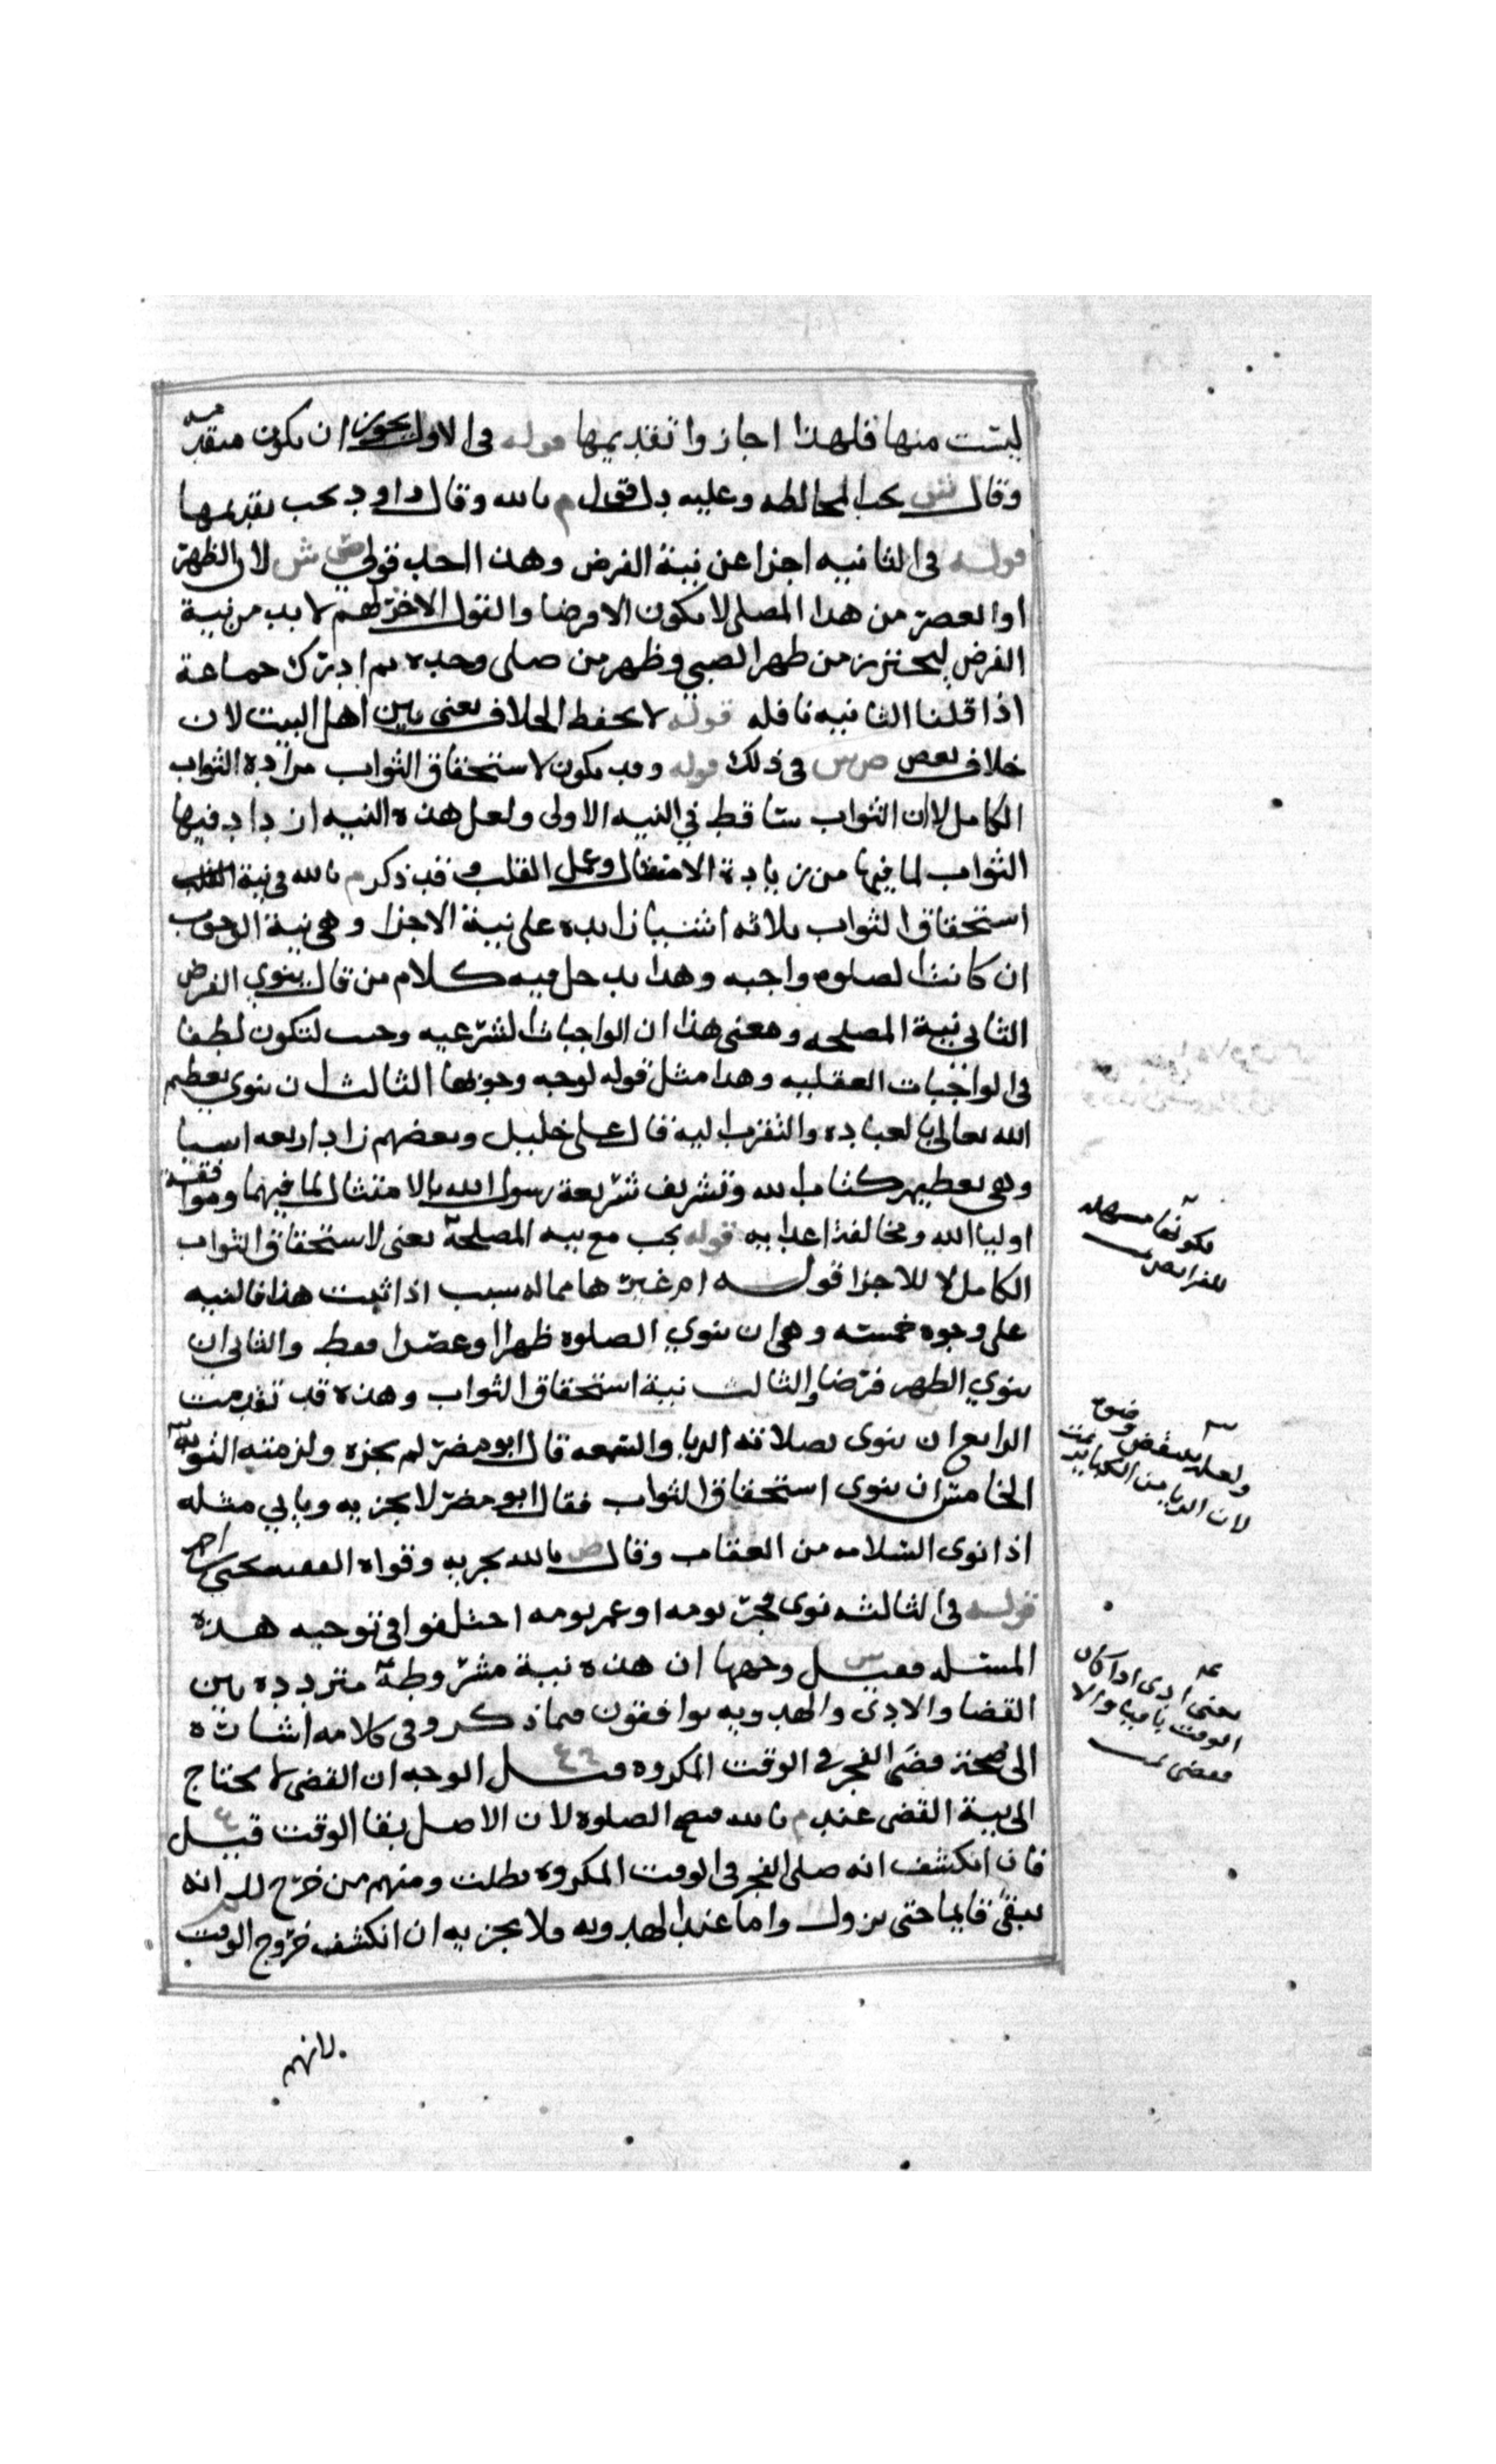 ليست منها فلهذا اجازوا تقديمها قوله في الاولى يجوز ان يكون متقدمه
وقال ش يجب المخالطه وعليه دل قول م بالله وقال داود يجب تقديمها
قوله في الثانيه اجزا عن نية الفرض وهذا احد قولي ص ش لان الظهر
او العصر من هذا المصلي لا يكون الا فرضا والقول الاخر لهم لا بد من نية
الفرض ليحترز من ظهر الصبي وظهر من صلى وحده ثم ادرك جماعة
اذا قلنا الثانيه نافله قوله لا يحفظ الخلاف يعني بين اهل البيت لان
خلاف بعض ص ش في ذلك قوله وقد يكون لاستحقاق الثواب مراده الثواب
الكامل لان الثواب ساقط في النيه الاولى ولعل هذه النيه ازداد فيها
الثواب لما فيها من زيادة الامتثال وعمل القلب وقد ذكر م بالله في نية
استحقاق الثواب ثلاثه اشيا زايده على نية الاجزا وهي نية الوجوب
ان كانت الصلوه واجبه وهذا يدخل فيه كلام من قال ينوي الفرض
الثاني نية المصلحه ومعنى هذا ان الواجبات الشرعيه وجبت لتكون لطفا
في الواجبات العقليه وهذا مثل قوله لوجه وجوبها الثالث ان ينوي تعظيم
الله تعالى بالعباده والتقرب اليه قال علي خليل وبعضهم زاد اربعه اشيا
وهي تعظيم كتاب الله وتشريف شريعة رسول الله بالامتثال لما فيهما وموافقة
اوليا الله ومخالفة اعدايه قوله يجب مع نيه المصلحة يعني لاستحقاق الثواب
الكامل لا للاجزا قوله ام غيرها مما له سبب اذا ثبت هذا فالنيه
على وجوه خمسته وهي ان ينوي الصلوه ظهرا او عصرا فقط والثاني ان
ينوي الظهر فرضا والثالث نية استحقاق الثواب وهذه قد تقدمت
الرابع ان ينوى بصلاته الريا والسمعه قال ابو مضر لم يجزه ولزمته التوبه
الخامس ان ينوى استحقاق الثواب فقال ابو مضر لا يجزيه وياتي مثله
اذا نوى السلامه من العقاب وقال ص بالله يجزيه وقواه الفقيه يحيى
قوله في الثالثه نوى فجر يومه او عصر يومه اختلفوا في توجيه هذه
المسئله فقيل س وجهها ان هذه نية مشروطة مترددة بين
القضا والادى والهدويه يوافقون فيما ذكر وفي كلامه اشارة
الى صحة قضى الفجر في الوقت المكروه وقيل الوجه ان القضى لا يحتاج
الى نية القضى عند م بالله فتصح الصلوه لان الاصل بقا الوقت قيل
فان انكشف انه صلى الفجر في الوقت المكروه بطلت ومنهم من خرج انه
يبقى قايما حتى يزول واما عند الهدويه ولا يجزيه ان انكشف خروج الوقت
لانهم
لكونها مسهله
للفرايض
ولعله ينتقض وضوه
لان الريا من الكباير
يعني أدى اذا كان
الوقت باقيا والا
فقضى